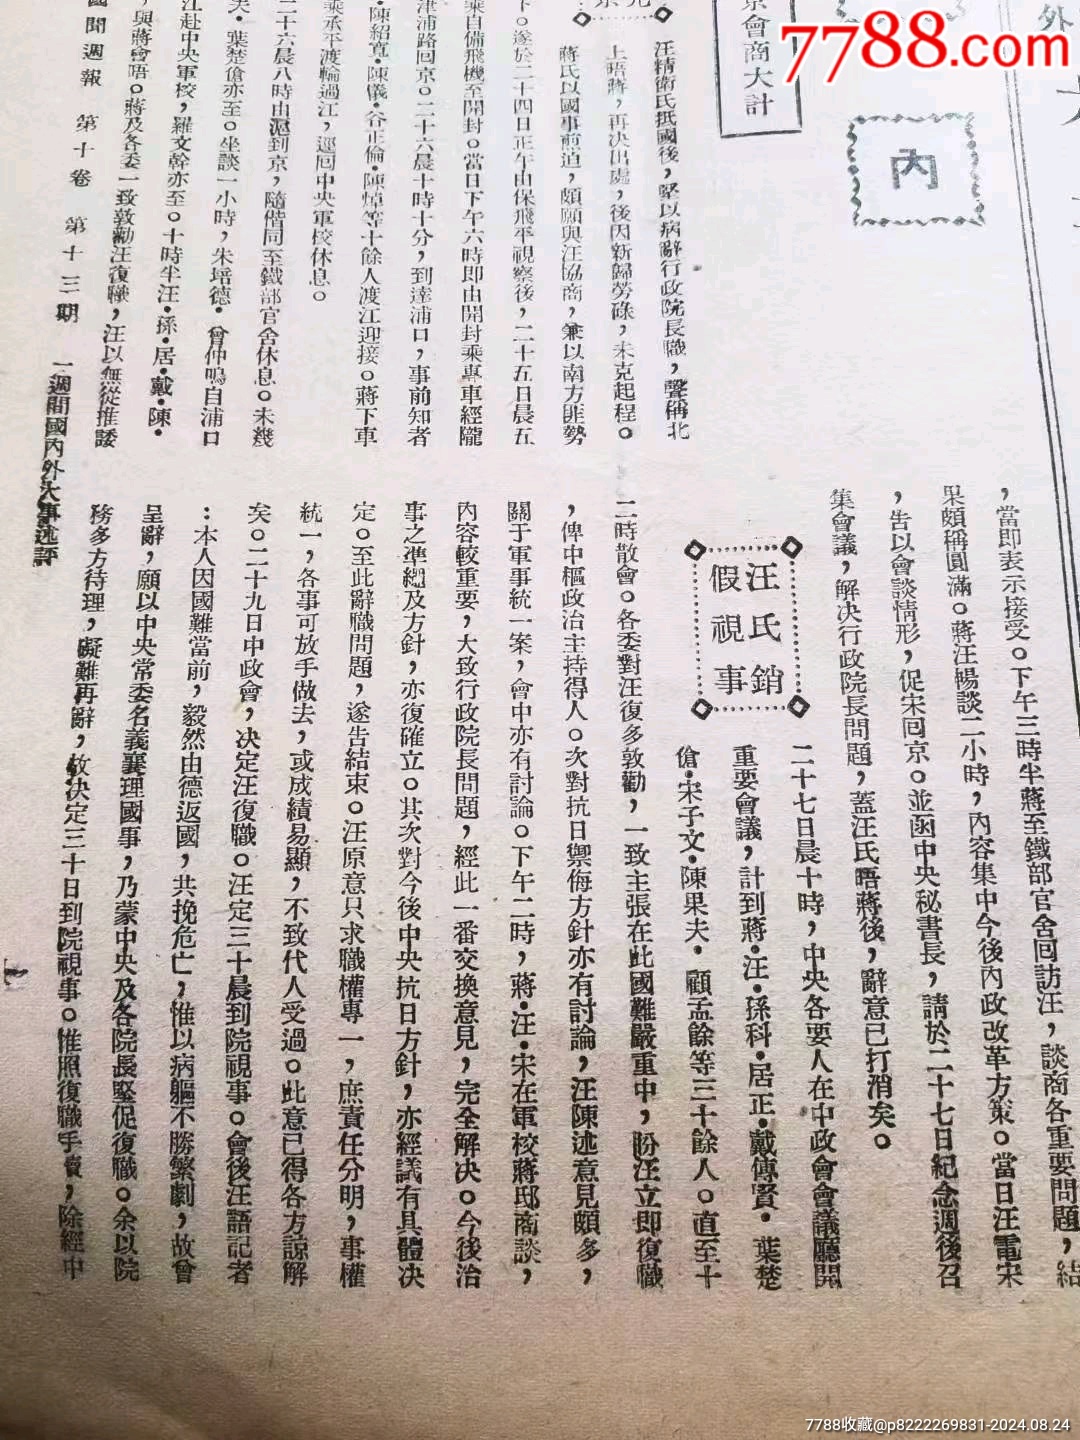 7788.com
外
內
京會商大計
汪精衛氏抵國後，堅以病辭行政院長職，聲稱北
上晤蔣，再決出處，後因新歸勞碌，未克起程。
蔣氏以國事煎迫，頗願與汪協商，兼以南方匪勢
下。遂於二十四日正午由保飛平視察後，二十五日晨五
乘自備飛機至開封。當日下午六時即由開封乘專車經隴
津浦路回京。二十六晨十時十分，到達浦口，事前知者
陳紹寬·陳儀·谷正倫·陳焯等十餘人渡江迎接。蔣下車
乘承平渡輪過江，逕回中央軍校休息。
二十六晨八時由滬到京，隨偕同至鐵部官舍休息。未幾
夫·葉楚傖亦至。坐談一小時，朱培德·曾仲鳴自浦口
江赴中央軍校，羅文幹亦至。十時半汪·孫·居·戴·陳·
，與蔣會晤。蔣及各委一致敦勸汪復職，汪以無從推諉
，當即表示接受。下午三時半蔣至鐵部官舍回訪汪，談商各重要問題，結
果頗稱圓滿。蔣汪暢談二小時，內容集中今後內政改革方策。當日汪電宋
，告以會談情形，促宋回京。並函中央秘書長，請於二十七日紀念週後召
集會議，解決行政院長問題，蓋汪氏晤蔣後，辭意已打消矣。
汪氏銷
假視事
二十七日晨十時，中央各要人在中政會會議廳開
重要會議，計到蔣·汪·孫科·居正·戴傳賢·葉楚
傖·宋子文·陳果夫·顧孟餘等三十餘人。直至十
二時散會。各委對汪復多敦勸，一致主張在此國難嚴重中，盼汪立即復職
，俾中樞政治主持得人。次對抗日禦侮方針亦有討論，汪陳述意見頗多，
關于軍事統一案，會中亦有討論。下午二時，蔣·汪·宋在軍校蔣邸商談，
內容較重要，大致行政院長問題，經此一番交換意見，完全解決。今後治
事之準繩及方針，亦復確立。其次對今後中央抗日方針，亦經議有具體決
定。至此辭職問題，遂告結束。汪原意只求職權專一，庶責任分明，事權
統一，各事可放手做去，或成績易顯，不致代人受過。此意已得各方諒解
矣。二十九日中政會，決定汪復職。汪定三十晨到院視事。會後汪語記者
：本人因國難當前，毅然由德返國，共挽危亡，惟以病軀不勝繁劇，故曾
呈辭，願以中央常委名義襄理國事，乃蒙中央及各院長堅促復職。余以院
務多方待理，礙難再辭，故決定三十日到院視事。惟照復職手續，除經中
國聞週報 第十卷 第十三期 一週間國內外大事述評
一
7788收藏@p8222269831-2024.08.24